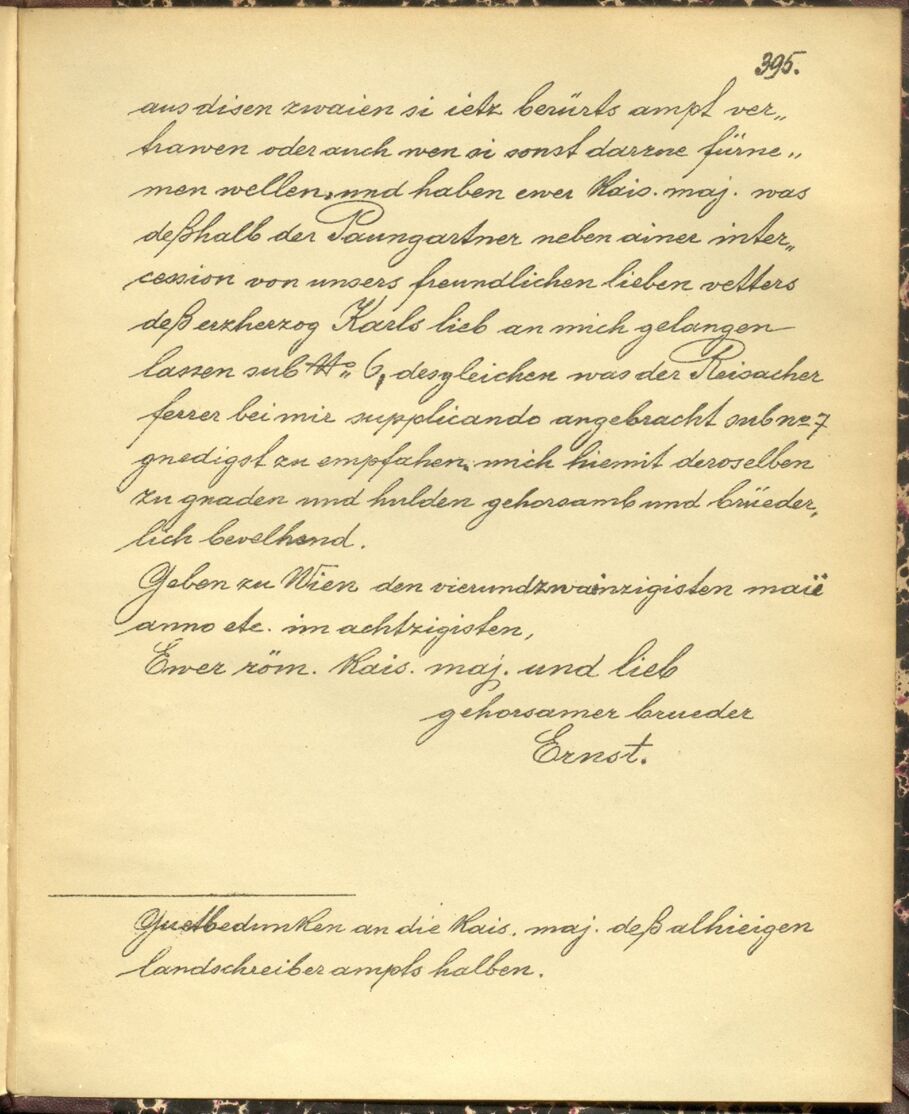 395.
aus disen zwaien si ietz berürts ampt ver„
trawen oder auch wen si sonst darzue fürne„
men wellen, und haben ewer kais. maj. was
deßhalb der Paungartner neben ainer inter„
cession von unsers freundlichen lieben vetters
deß erzherzog Karls lieb an mich gelangen
lassen sub No 6, desgleichen was der Reisacher
ferrer bei mir supplicando angebracht sub no 7
gnedigst zu empfahen, mich hiemit deroselben
zu gnaden und hulden gehorsamb und brüeder„
lich bevelhend.
Geben zu Wien den vierundzwainzigisten maii
anno etc. im achtzigisten,
Ewer röm. kais. maj. und lieb
gehorsamer brueder
Ernst.
Guetbedunken an die kais. maj. deß alhieigen
landschreiber ampts halben.